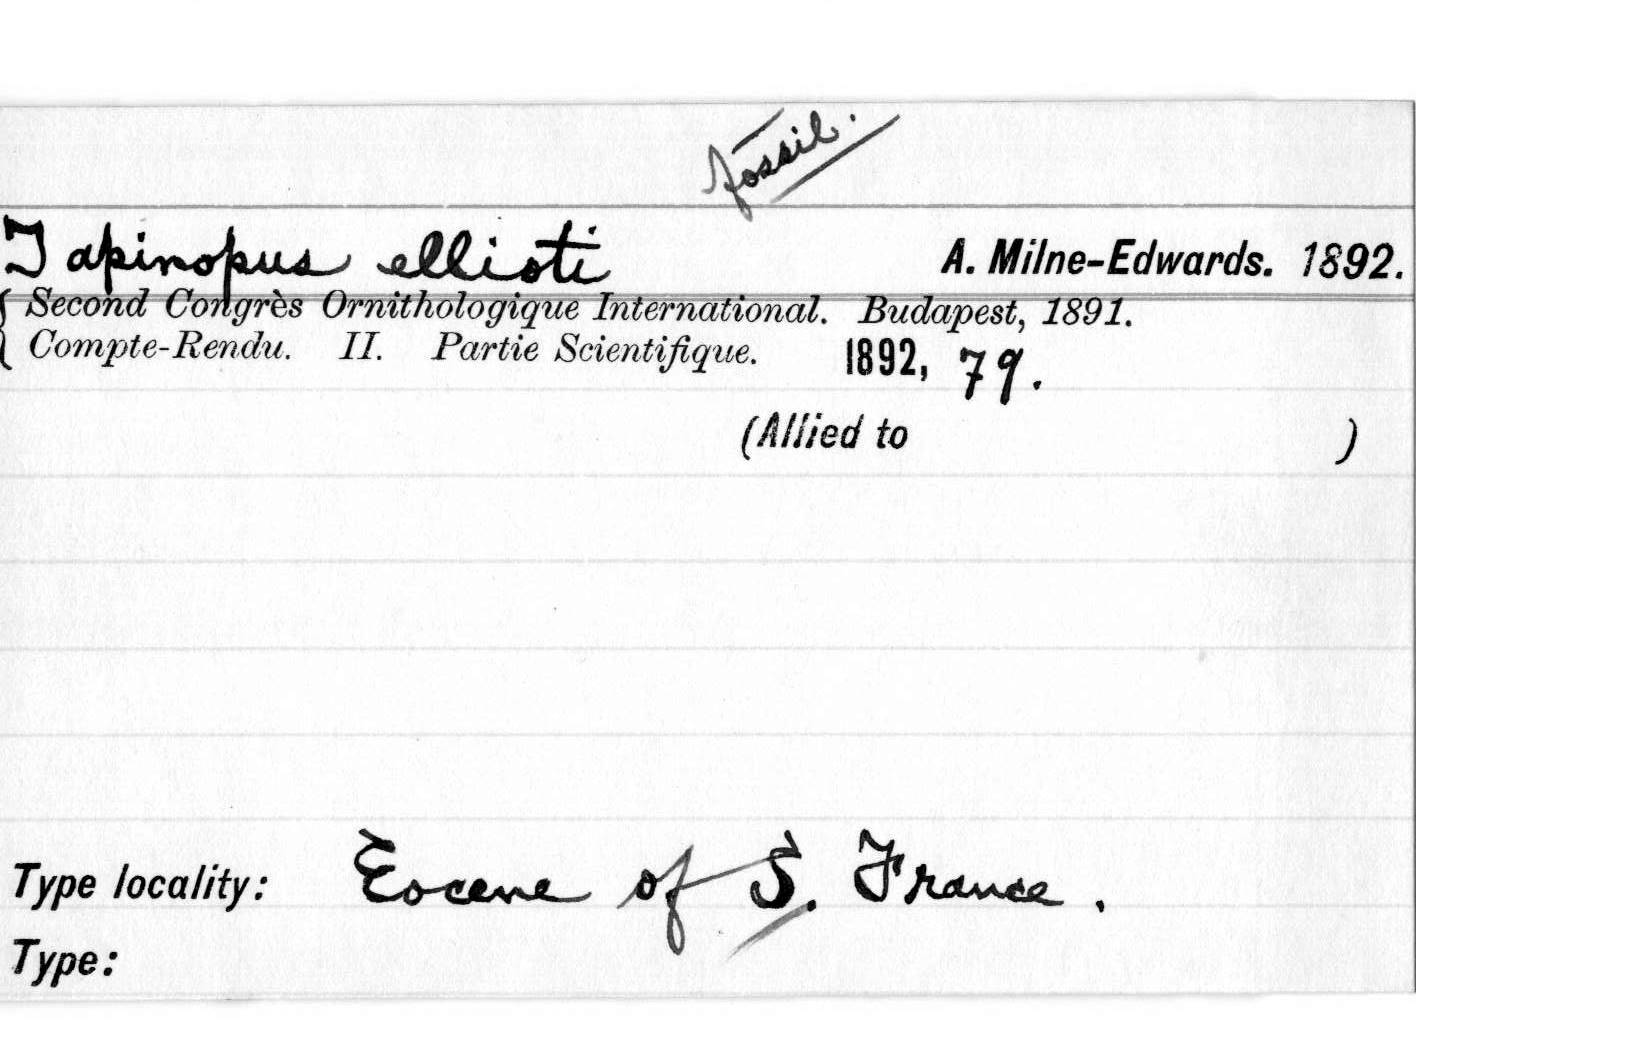 fossil.
Tapinopus ellioti A. Milne-Edwards. 1892.
Second Congrès Ornithologique International. Budapest, 1891.
Compte-Rendu. II. Partie Scientifique. 1892, 79.
(Allied to )
Type locality: Eocene of S. France.
Type: